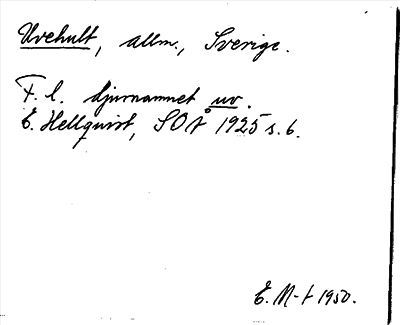 Uvehult, allm., Sverige.
F. l. djurnamnet uv.
E. Hellquist, SOÅ 1925 s. 6.
E. M-t 1950.